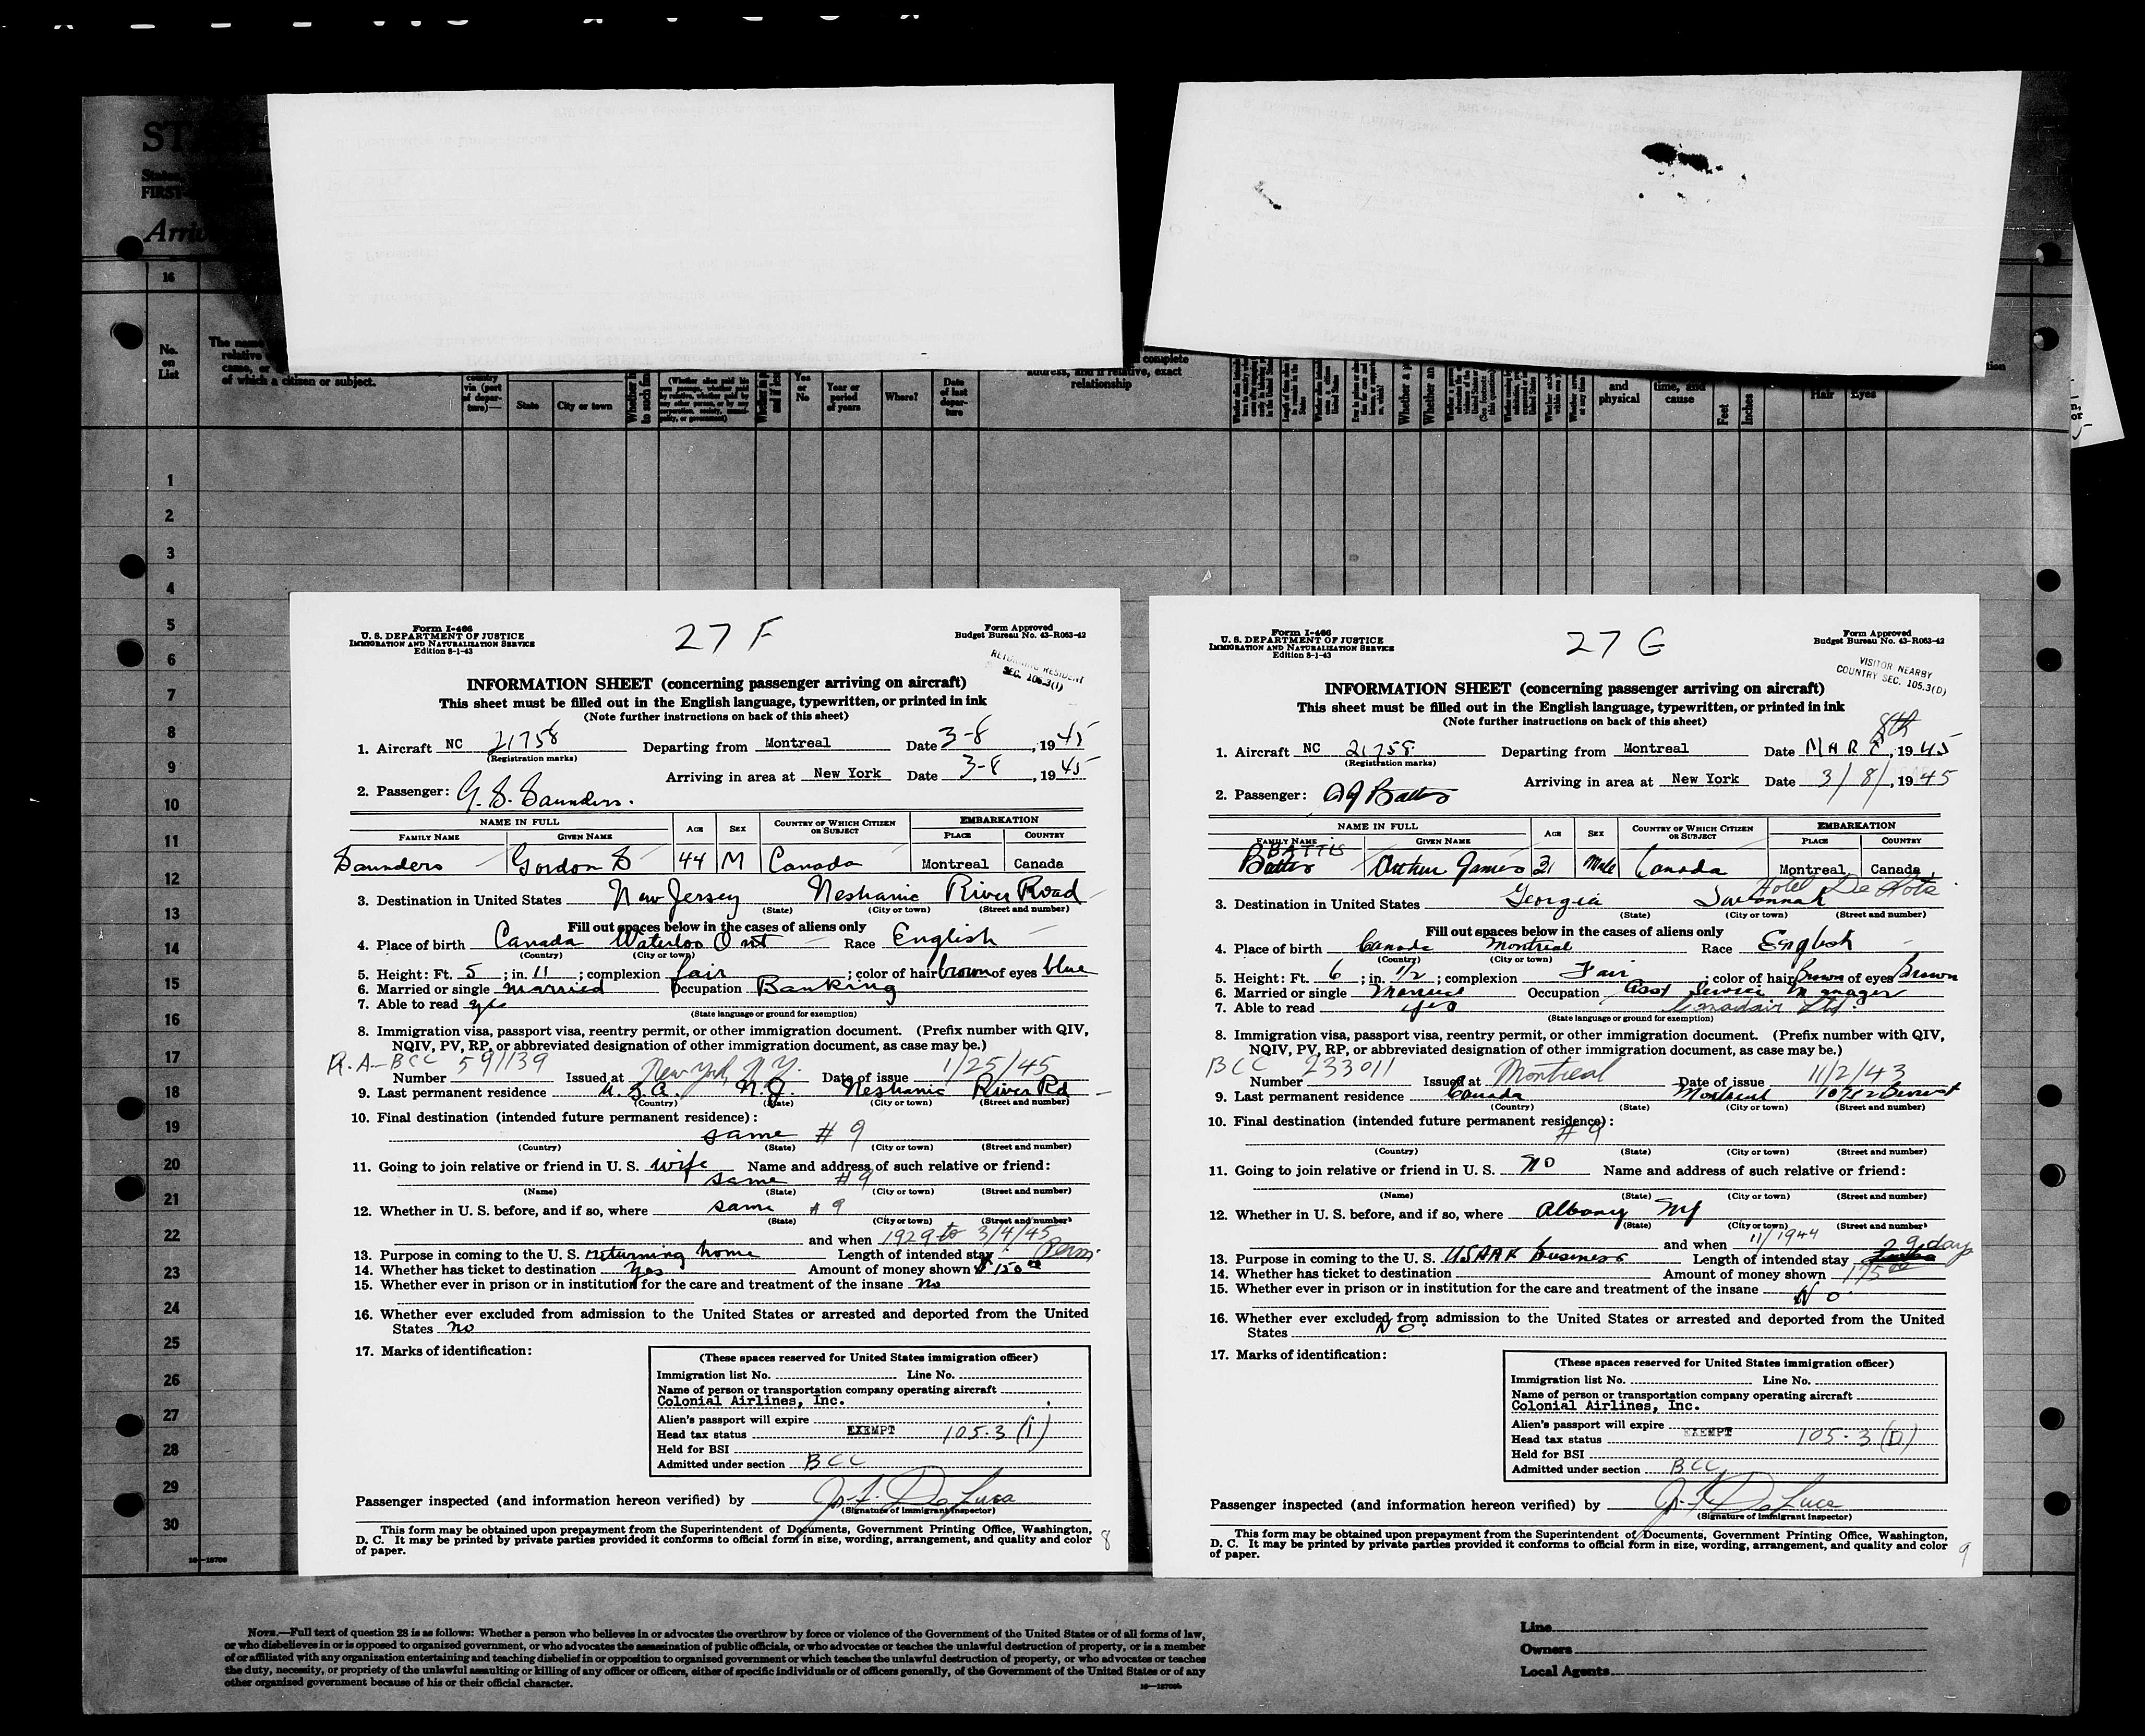 16
No.
on
List
The name
relative
case, or
of which a citizen or subject.
country
via (port
of depar-
ture)—
State
City or town
Yes
or
No
Year or
period
of years
Where?
Date
of last
depar-
ture
complete
address, and if relative, exact
relationship
and
physical
time, and
cause
Feet
Inches
Hair
Eyes
1
2
3
4
5
6
7
8
9
10
11
12
13
14
15
16
17
18
19
20
21
22
23
24
25
26
27
28
29
30
Form I-466
U. S. DEPARTMENT OF JUSTICE
IMMIGRATION AND NATURALIZATION SERVICE
Edition 8-1-43
27 F
Form Approved
Budget Bureau No. 43-R063-42
RETURNING RESIDENT
SEC. 105.3(1)
INFORMATION SHEET (concerning passenger arriving on aircraft)
This sheet must be filled out in the English language, typewritten, or printed in ink
(Note further instructions on back of this sheet)
1. Aircraft NC 21758 Departing from Montreal Date 3-8, 1945
(Registration marks)
Arriving in area at New York Date 3-8, 1945
2. Passenger: G. S. Saunders.
NAME IN FULL AGE SEX COUNTRY OF WHICH CITIZEN OR SUBJECT EMBARKATION
FAMILY NAME GIVEN NAME PLACE COUNTRY
Saunders Gordon S 44 M Canada Montreal Canada
3. Destination in United States New Jersey Neshanic River Road
(State) (City or town) (Street and number)
Fill out spaces below in the cases of aliens only
4. Place of birth Canada Waterloo Ont Race English
(Country) (City or town)
5. Height: Ft. 5; in. 11; complexion fair; color of hair brown of eyes blue
6. Married or single married Occupation Banking
7. Able to read yes
(State language or ground for exemption)
8. Immigration visa, passport visa, reentry permit, or other immigration document. (Prefix number with QIV,
NQIV, PV, RP, or abbreviated designation of other immigration document, as case may be.)
R.A-BCC 591139 New York, N.Y. 1/25/45
Number Issued at Date of issue
9. Last permanent residence U.S.A. N.J. Neshanic River Rd
(Country) (State) (City or town) (Street and number)
10. Final destination (intended future permanent residence):
same # 9
(Country) (State) (City or town) (Street and number)
11. Going to join relative or friend in U. S. wife Name and address of such relative or friend:
same #9
(Name) (State) (City or town) (Street and number)
12. Whether in U. S. before, and if so, where same # 9
(State) (City or town) (Street and number)
and when 1929 to 3/4/45
13. Purpose in coming to the U. S. returning home Length of intended stay Perm.
14. Whether has ticket to destination Yes Amount of money shown $150 00
15. Whether ever in prison or in institution for the care and treatment of the insane No
16. Whether ever excluded from admission to the United States or arrested and deported from the United
States no
17. Marks of identification:
(These spaces reserved for United States immigration officer)
Immigration list No. Line No.
Name of person or transportation company operating aircraft
Colonial Airlines, Inc.
Alien's passport will expire
Head tax status EXEMPT 105.3 (i)
Held for BSI
Admitted under section BCC
Passenger inspected (and information hereon verified) by J. F. De Luca
(Signature of immigrant inspector)
This form may be obtained upon prepayment from the Superintendent of Documents, Government Printing Office, Washington,
D. C. It may be printed by private parties provided it conforms to official form in size, wording, arrangement, and quality and color
of paper.
8
Form I-466
U. S. DEPARTMENT OF JUSTICE
IMMIGRATION AND NATURALIZATION SERVICE
Edition 8-1-43
27 G
Form Approved
Budget Bureau No. 43-R063-42
VISITOR NEARBY
COUNTRY SEC. 105.3(D)
INFORMATION SHEET (concerning passenger arriving on aircraft)
This sheet must be filled out in the English language, typewritten, or printed in ink
(Note further instructions on back of this sheet)
8th
1. Aircraft NC 21758 Departing from Montreal Date MAR, 1945
(Registration marks)
Arriving in area at New York Date 3/8/, 1945
2. Passenger: A J Battis
NAME IN FULL AGE SEX COUNTRY OF WHICH CITIZEN OR SUBJECT EMBARKATION
FAMILY NAME GIVEN NAME PLACE COUNTRY
BATTIS
Battis Arthur James 31 Male Canada Montreal Canada
Hotel De Sota
3. Destination in United States Georgia Savannah
(State) (City or town) (Street and number)
Fill out spaces below in the cases of aliens only
4. Place of birth Canada Montreal Race English
(Country) (City or town)
5. Height: Ft. 6; in. 1/2; complexion Fair; color of hair Brown of eyes Brown
6. Married or single Married Occupation Asst Service Manager
7. Able to read yes Canadair Ltd.
(State language or ground for exemption)
8. Immigration visa, passport visa, reentry permit, or other immigration document. (Prefix number with QIV,
NQIV, PV, RP, or abbreviated designation of other immigration document, as case may be.)
BCC 233011 Montreal 11/2/43
Number Issued at Date of issue
9. Last permanent residence Canada Montreal
(Country) (State) (City or town) (Street and number)
10. Final destination (intended future permanent residence):
# 9
(Country) (State) (City or town) (Street and number)
11. Going to join relative or friend in U. S. No Name and address of such relative or friend:
(Name) (State) (City or town) (Street and number)
12. Whether in U. S. before, and if so, where Albany NY
(State) (City or town) (Street and number)
and when 11/1944
13. Purpose in coming to the U. S. business Length of intended stay 29 days
14. Whether has ticket to destination Amount of money shown 175 00
15. Whether ever in prison or in institution for the care and treatment of the insane No
16. Whether ever excluded from admission to the United States or arrested and deported from the United
States No.
17. Marks of identification:
(These spaces reserved for United States immigration officer)
Immigration list No. Line No.
Name of person or transportation company operating aircraft
Colonial Airlines, Inc.
Alien's passport will expire
Head tax status EXEMPT 105.3 (D)
Held for BSI
Admitted under section BCC
Passenger inspected (and information hereon verified) by J. F. De Luca
(Signature of immigrant inspector)
This form may be obtained upon prepayment from the Superintendent of Documents, Government Printing Office, Washington,
D. C. It may be printed by private parties provided it conforms to official form in size, wording, arrangement, and quality and color
of paper.
9
NOTE.—Full text of question 28 is as follows: Whether a person who believes in or advocates the overthrow by force or violence of the Government of the United States or of all forms of law,
or who disbelieves in or is opposed to organized government, or who advocates the assassination of public officials, or who advocates or teaches the unlawful destruction of property, or is a member
of or affiliated with any organization entertaining and teaching disbelief in or opposition to organized government or which teaches the unlawful destruction of property, or who advocates or teaches
the duty, necessity, or propriety of the unlawful assaulting or killing of any officer or officers, either of specific individuals or of officers generally, of the Government of the United States or of any
other organized government because of his or their official character.
Line
Owners
Local Agents